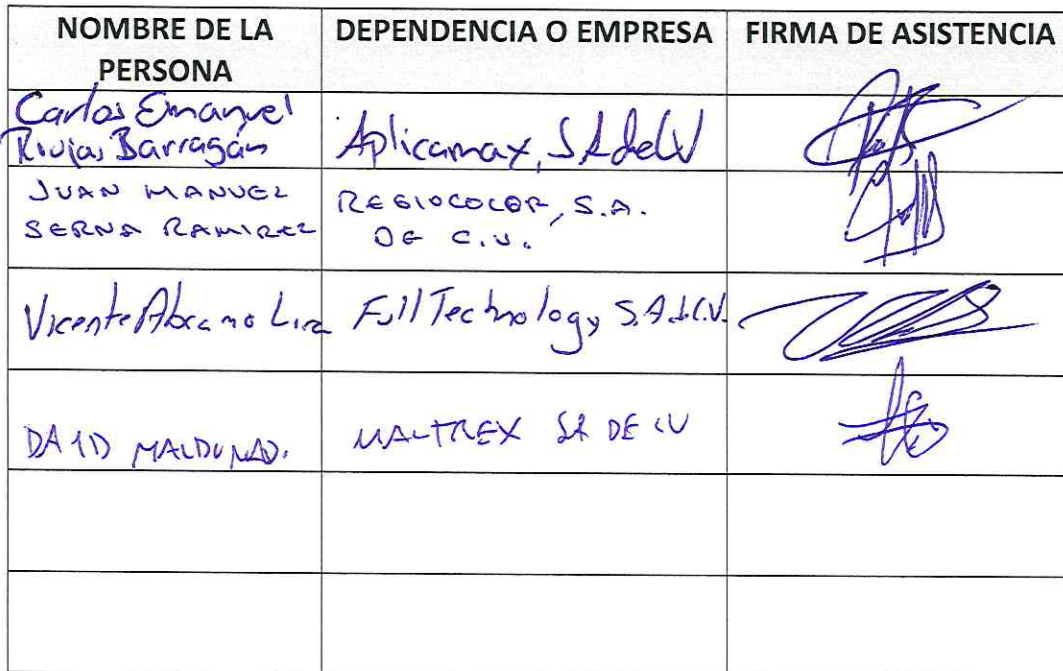 NOMBRE DE LA PERSONA
DEPENDENCIA O EMPRESA
FIRMA DE ASISTENCIA
Carlos Emanuel
Riojas Barragán
Aplicamax, SA de CV
JUAN MANUEL
SERNA RAMIREZ
REGIOCOLOR, S.A.
DE C.V.
Vicente Abramo Lira
Full Technology S.A. de C.V.
DAVID MALDONADO.
MALTREX SA DE CV